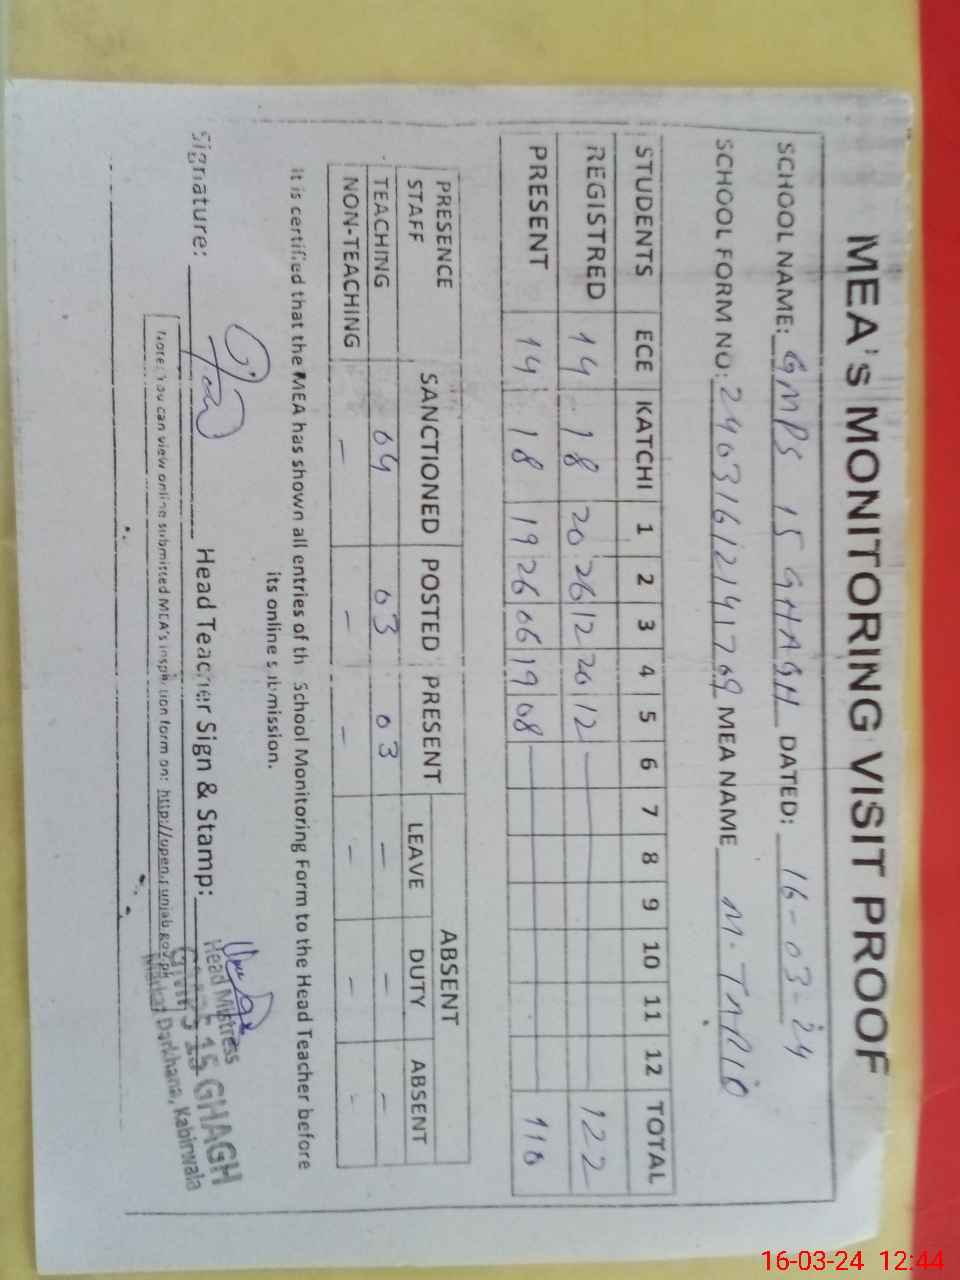 MEA's MONITORING VISIT PROOF
SCHOOL NAME: GMPS 15 GHAGH DATED: 16-03-24
SCHOOL FORM NO: MEA NAME M. TARIQ
STUDENTS ECE KATCHI 1 2 3 4 5 6 7 8 9 10 11 12 TOTAL
REGISTRED 14 18 20 26 12 20 12 122
PRESENT 14 18 19 26 06 19 08 110
PRESENCE STAFF SANCTIONED POSTED PRESENT ABSENT
LEAVE DUTY ABSENT
TEACHING 04 03 03 – – –
NON-TEACHING – – – – – –
It is certified that the MEA has shown all entries of th School Monitoring Form to the Head Teacher before
its online submission.
Signature: Head Teacher Sign & Stamp:
Head Mistress
GMPS 15 GHAGH
Markaz Darkhana, Kabirwala
Note: You can view online submitted MEA's inspection form on: http://open.punjab.gov.pk
16-03-24 12:44